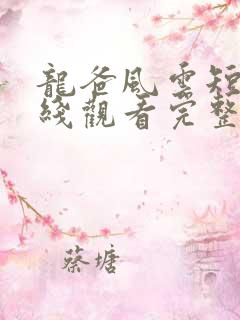 龍爸風雲短
綫觀看完整
蔡塘